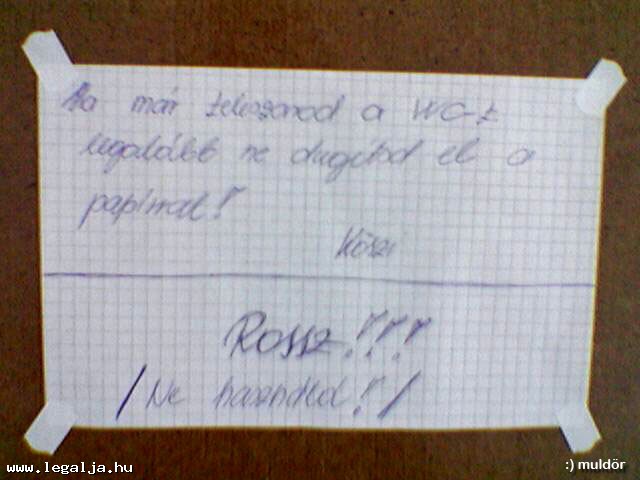 Ha már teleszarod a WC-t
legalább ne dugítsd el a
papírral!
Köszi
Rossz!!!
/Ne használd!/
www.legalja.hu
:) muldör